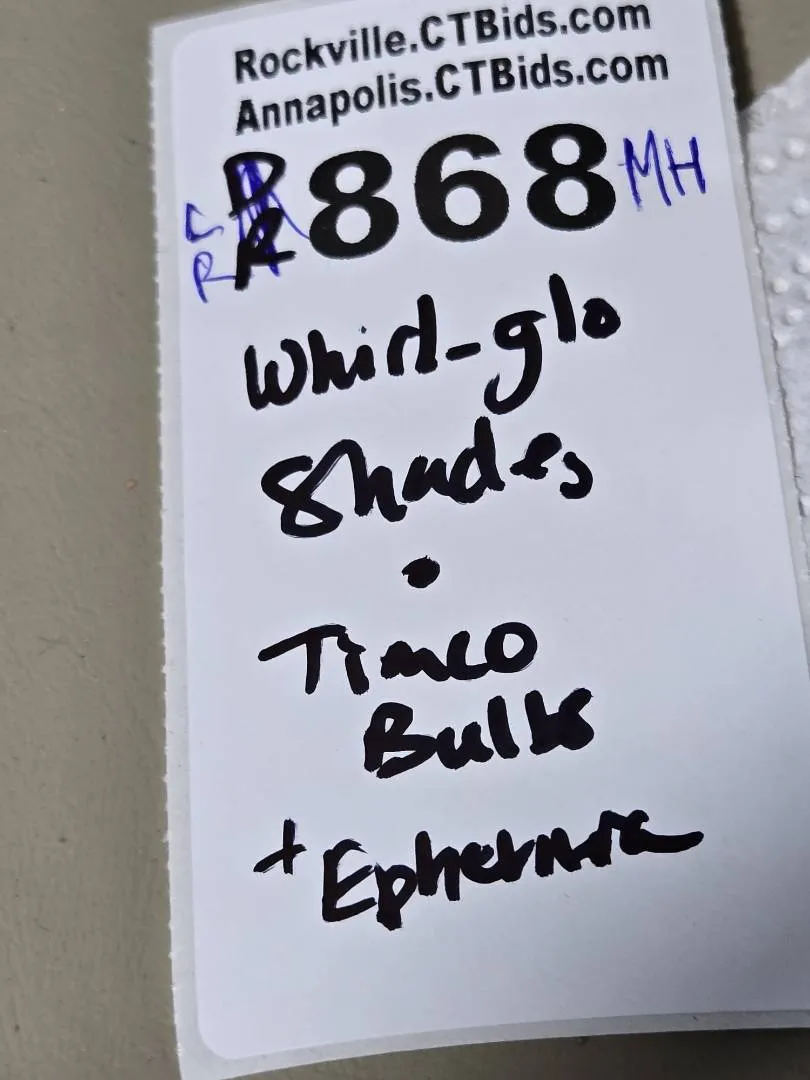 Rockville.CTBids.com
Annapolis.CTBids.com
868 MH
Whirl-glo
Shades
•
Timco
Bulbs
+ Ephemera